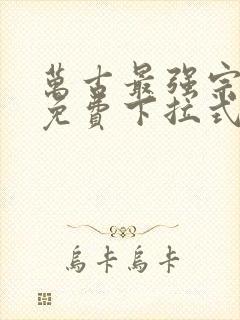 萬古最强宗
免費下拉式
烏卡烏卡